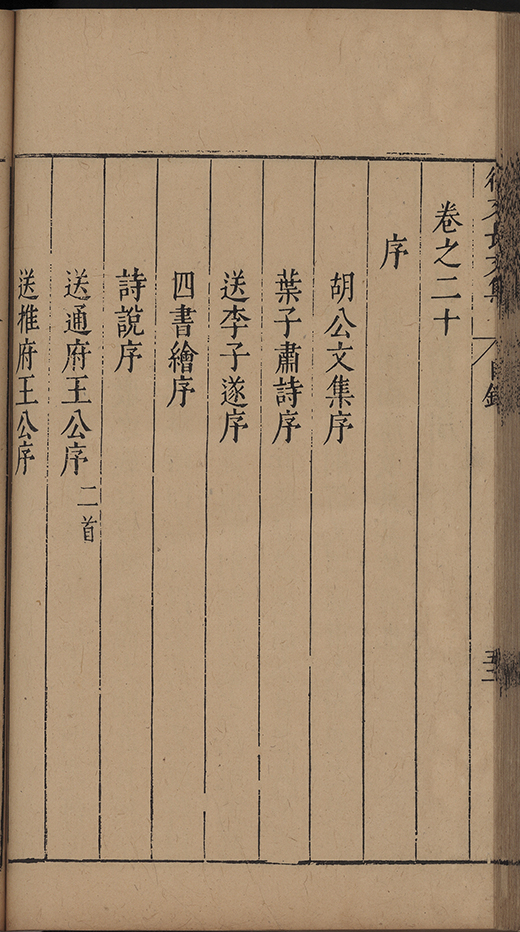 徐文長文集 目錄 五二
卷之二十
序
胡公文集序
葉子肅詩序
送李子遂序
四書繪序
詩說序
送通府王公序 二首
送推府王公序